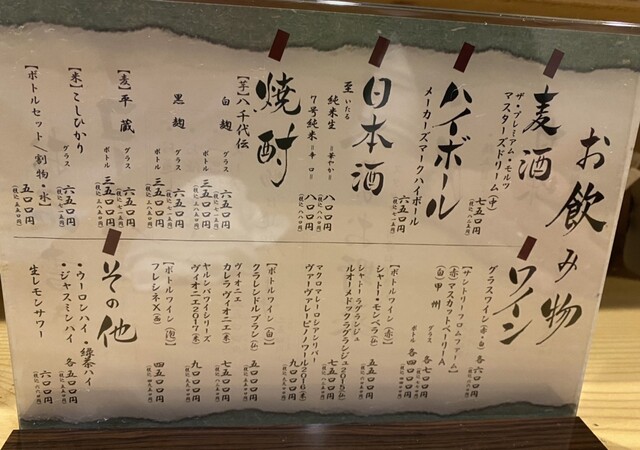 お飲み物
麦酒
ザ・プレミアム・モルツ
マスターズドリーム(中)
七五〇円
(税込 八二五円)
ハイボール
メーカーズマークハイボール
六五〇円
(税込 七一五円)
日本酒
至 いたる
純米生 =華やか=
八〇〇円
(税込 八八〇円)
7号純米 =辛口=
八〇〇円
(税込 八八〇円)
焼酎
【芋】八千代伝
白麹
グラス 六五〇円
(税込 七一五円)
ボトル 三五〇〇円
(税込 三八五〇円)
黒麹
グラス 六五〇円
(税込 七一五円)
ボトル 三五〇〇円
(税込 三八五〇円)
【麦】平蔵
グラス 六五〇円
(税込 七一五円)
ボトル 三五〇〇円
(税込 三八五〇円)
【米】こしひかり
グラス 六五〇円
(税込 七一五円)
【ボトルセット/割物・氷】
五〇〇円
(税込 五五〇円)
ワイン
グラスワイン(赤・白)
各六〇〇円
(税込 六六〇円)
【サントリーフロムファーム】
(赤)マスカットベーリーA
(白)甲州
グラス 各七〇〇円
(税込 七七〇円)
ボトル 各四〇〇〇円
(税込 四四〇〇円)
【ボトルワイン(赤)】
シャトーモンペラ(仏)
五五〇〇円
シャトーラグランジュ
ルオーメドックラグランジュ2015(仏)
七五〇〇円
マクロマレーロシアンリバー
ヴァーヴァレーピノノワール2016(米)
九〇〇〇円
【ボトルワイン(白)】
クラレンドルブラン(仏)
五〇〇〇円
ヴィオニエ
カレラヴィオニエ(米)
七五〇〇円
ヤルンバワイシリーズ
ヴィオニエ2017(米)
九〇〇〇円
【ボトルワイン(泡)】
フレシネX(西)
四五〇〇円
その他
・ウーロンハイ・緑茶ハイ
・ジャスミンハイ
各五〇〇円
(税込 五五〇円)
生レモンサワー
六〇〇円
(税込 六六〇円)